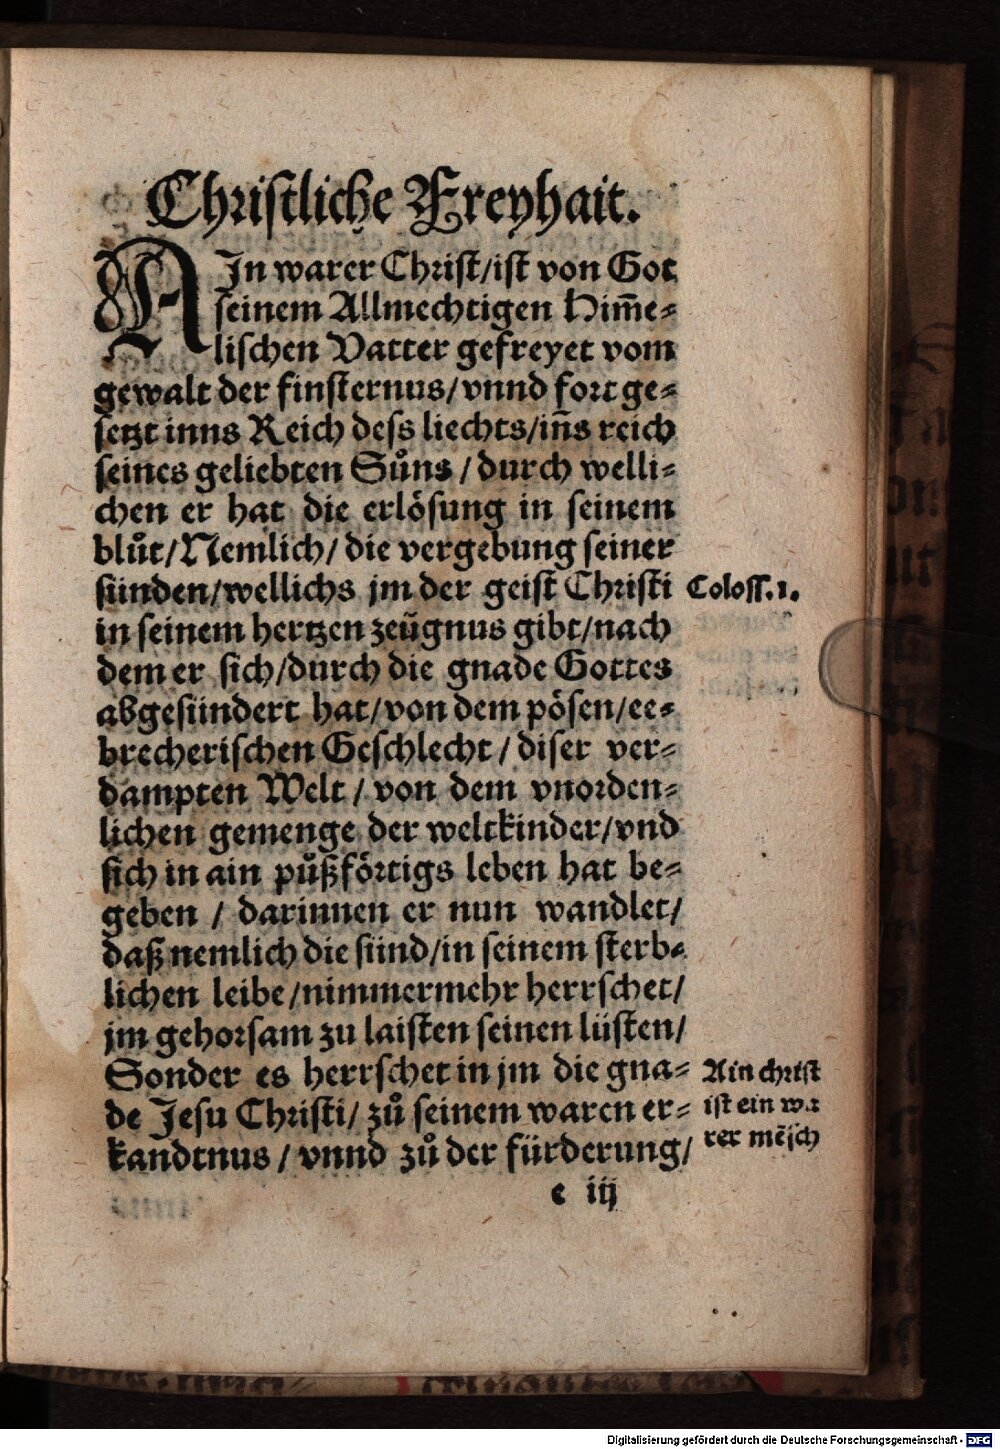 Christliche Freyhait.
AIn warer Christ/ist von Got
seinem Allmechtigen Him̃e-
lischen Vatter gefreyet vom
gewalt der finsternus/vnnd fort ge-
setzt inns Reich dess liechts/iñs reich
seines geliebten Sůns/durch welli-
chen er hat die erlösung in seinem
blůt/Nemlich/die vergebung seiner
sünden/wellichs jm der geist Christi
Coloss.1.
in seinem hertzen zeügnus gibt/nach
dem er sich/durch die gnade Gottes
abgesündert hat/von dem pösen/ee-
brecherischen Geschlecht/diser ver-
dampten Welt/von dem vnorden-
lichen gemenge der weltkinder/vnd
sich in ain půßförtigs leben hat be-
geben/darinnen er nun wandlet/
daß nemlich die sünd/in seinem sterb-
lichen leibe/nimmermehr herrschet/
jm gehorsam zu laisten seinen lüsten/
Sonder es herrschet in jm die gna-
de Jesu Christi/zů seinem waren er-
kandtnus/vnnd zů der fürderung/
Ain christ
ist ein wa
rer mẽsch
e iij
Digitalisierung gefördert durch die Deutsche Forschungsgemeinschaft - DFG